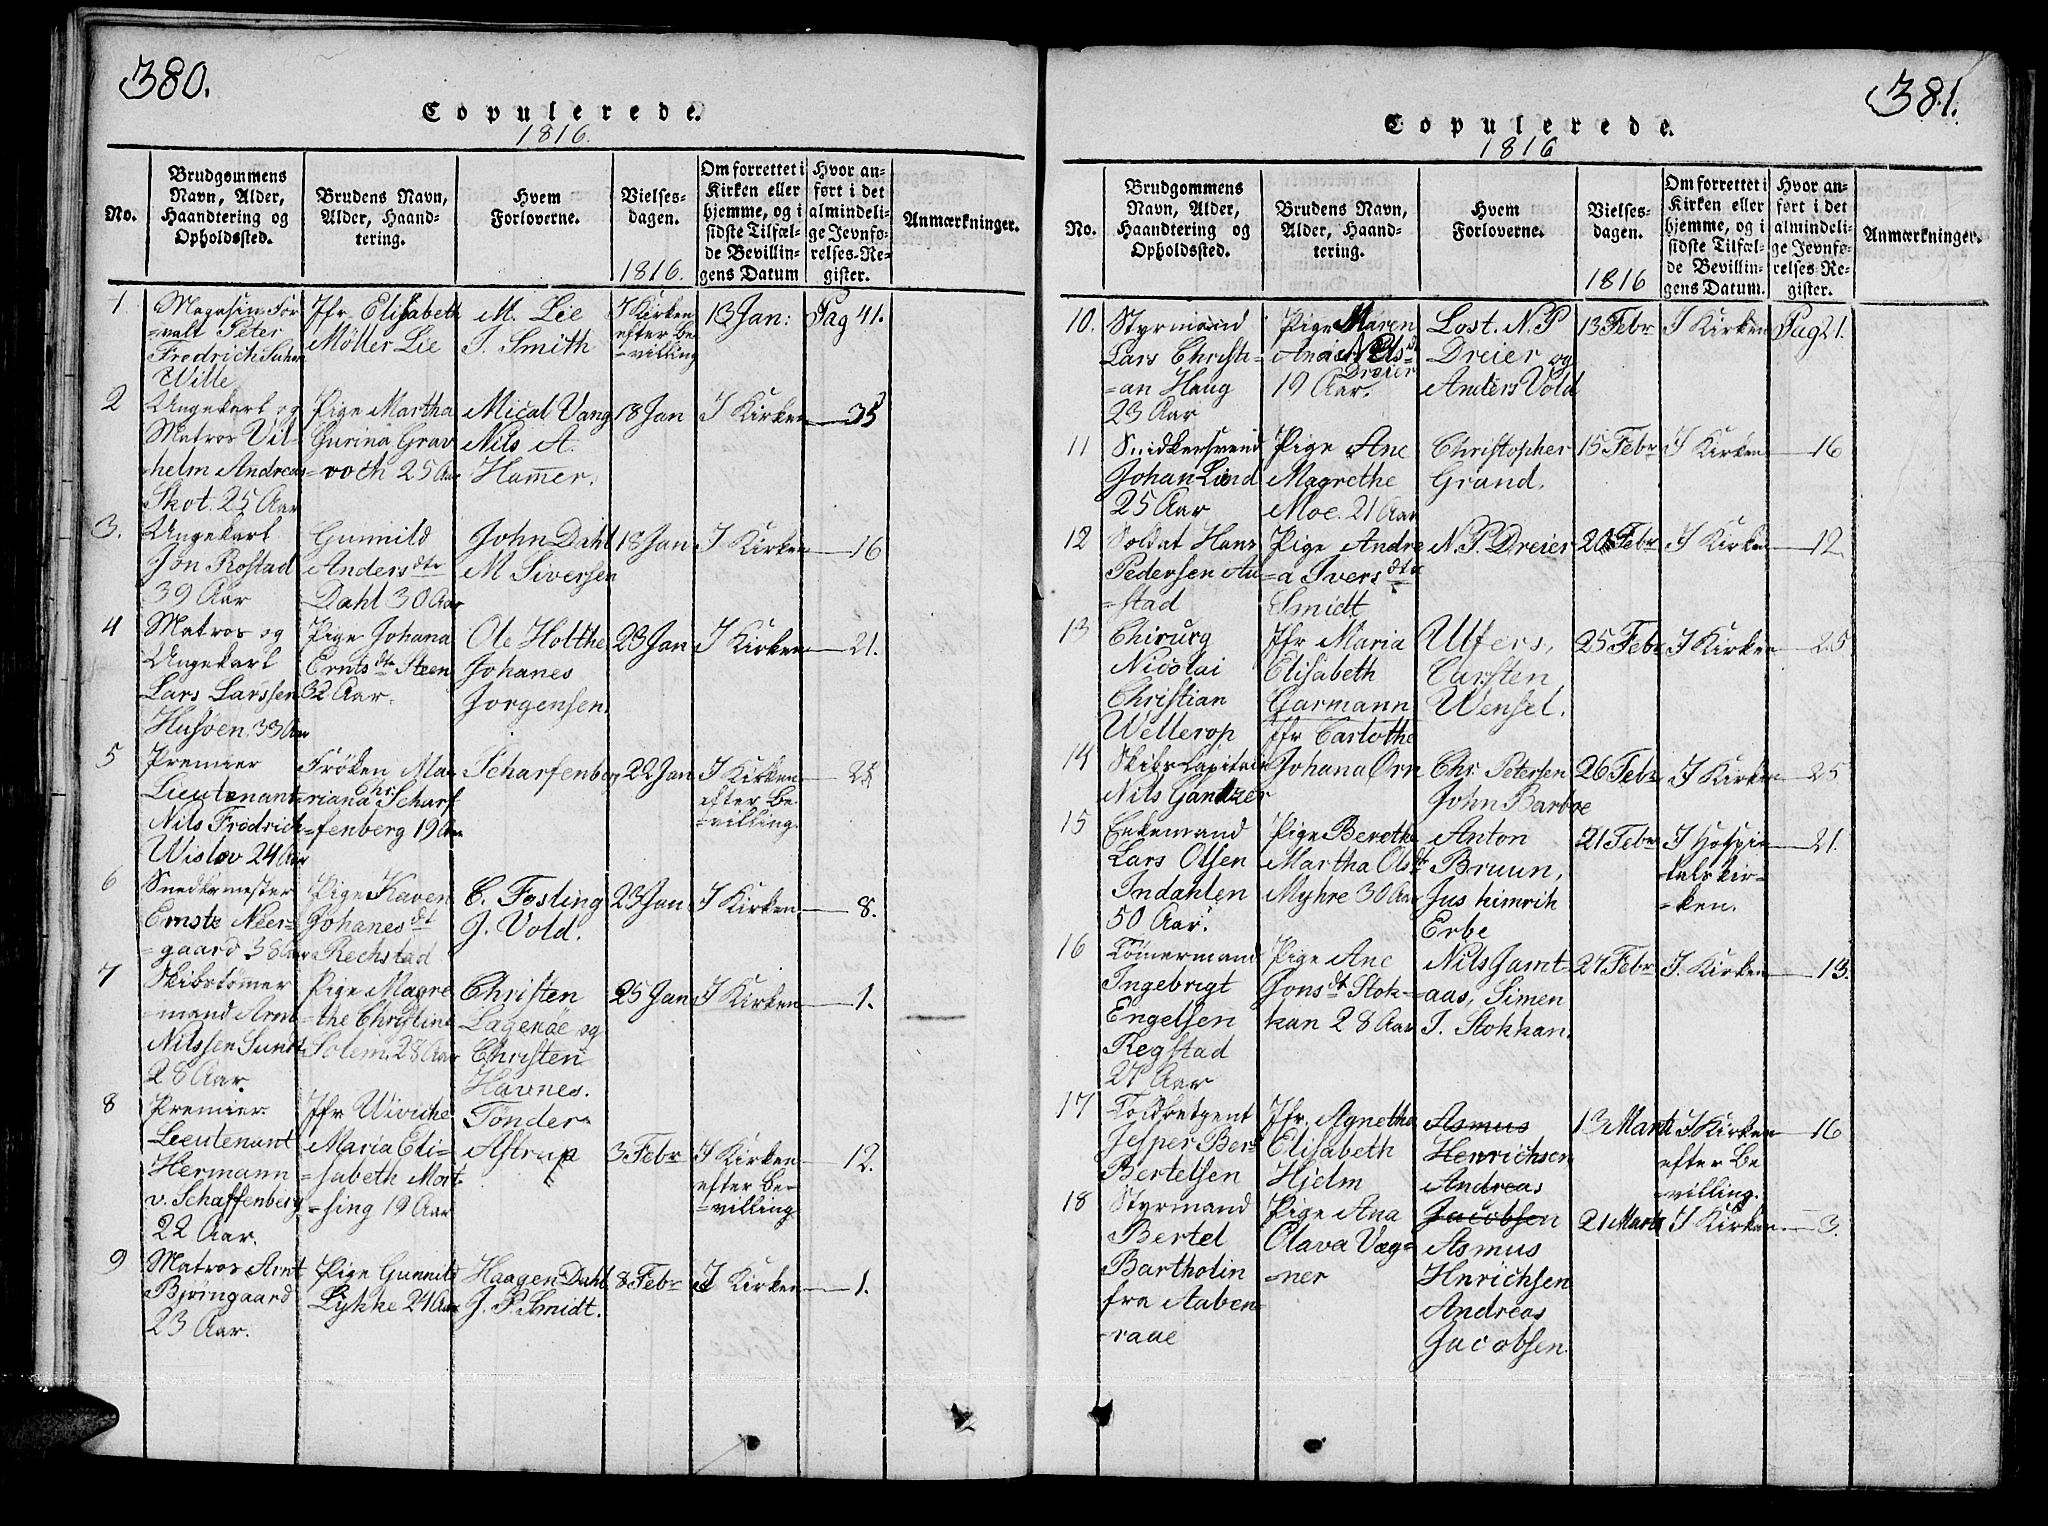 380.
Copulerede.
1816.
No.
Brudgommens
Navn, Alder,
Haandtering og
Opholdssted.
Brudens Navn,
Alder, Haand-
tering.
Hvem
Forloverne.
Vielses-
dagen.
1816.
Om forrettet i
Kirken eller
hjemme, og i
sidste Tilfæl-
de Bevillin-
gens Datum
Hvor an-
ført i det
almindeli-
ge Jevnfø-
relses-Re-
gister.
Anmærkninger.
1
Magasin For
=valt Peter
Fredrich Suhm
Wille
Jfr. Elisabeth
Möller Lie
M. Lie
J. Smith
I Kirken
efter Be
=villing
13 Jan:
Pag 41.
2
Ungekarl og
Matros Vil-
helm Andreas
Skot. 25 Aar
Pige Martha
Gurina Grav
=voch 25 Aar
Mical Vang
Nils A.
Hamer.
18 Jan
I Kirken
35
3.
Ungekarl
Jon Rostad
39 Aar
Gunnild
Anders dtr
Dahl 30 Aar
John Dahl
M Siversen
18 Jan
I Kirken
16
4
Matros og
Ungekarl
Lars Larssen
Husöen 33 Aar
Pige Johana
Ernts dtr Steen
32 Aar.
Ole Holthe
Johanes
Jorgensen.
23 Jan
I Kirken
21.
5
Premier
Lieutenant
Nils Fredrich
Wislov 24 Aar
Fröken Ma-
riana Chr. Scharf
=fenberg 19 Aar
Scharfenberg
22 Jan
I Kirken
efter be
=villing
25
6
Snedkermester
Ernste Neer-
=gaard 38 Aar
Pige Karen
Johanes dt
Rechstad
C. Fosling
J. Vold.
23 Jan
I Kirken
8.
7
Skibstömer
=mand Arnt
Nilssen Sundt
28 Aar.
Pige Magre
=the Christine
Solem. 28 Aar
Christen
Lagenöe og
Christen
Havnes.
25 Jan
I Kirken
1.
8
Premier
Lieutenant
Hermann
v. Schaffenberg
22 Aar.
Jfr Wiviche
Maria Eli-
=sabeth Mort
=sing 19 Aar
Tönder
Astrup
3 Febr
I Kirken
efter be-
=villing
12.
9
Matros Arnt
Björngaard
23 Aar.
Pige Gunnild
Lykke 24 Aar
Haagen Dahl
J. P Smidt.
8 Febr
I Kirken
1.
381.
Copulerede.
1816
No.
Brudgommens
Navn, Alder,
Haandtering og
Opholdssted.
Brudens Navn,
Alder, Haand-
tering.
Hvem
Forloverne.
Vielses-
dagen.
1816
Om forrettet i
Kirken eller
hjemme, og i
sidste Tilfæl-
de Bevillin-
gens Datum.
Hvor an-
ført i det
almindeli-
ge Jevnfø-
relses-Re-
gister.
Anmærkninger.
10.
Styrmand
Lars Christi-
=an Haug
23 Aar
Pige Maren
Dreier
19 Aar.
Lost. N. P
Dreier og
Anders Vold
13 Febr
I Kirken
Pag 21.
11
Snidkersvend
Johan Lind
25 Aar
Pige Ane
Magrethe
Moe. 21 Aar
Christopher
Grand.
15 Febr
I Kirken
16
12
Soldat Hans
Pedersen Au-
=stad
Pige Andre
=a Ivers dtr
Smidt
N. P. Dreier
20 Febr
I Kirken
12
13
Chirurg
Nicolai
Christian
Wellerop
Jfr Maria
Elisabeth
Garmann
Ulfers,
Carsten
Wensel.
25 Febr
I Kirken
25
14
Skibs Capitain
Nils Gantzer
Jfr Carlothe
Johana Örn
Chr. Petersen
John Barboe
26 Febr
I Kirken
25
15
Enkemand
Lars Olsen
Indahlen
50 Aar.
Pige Berethe
Martha Ols dtr
Myhre 30 Aar
Anton
Bruun,
Jus hinrich
Erbe
21 Febr
I Hospi-
tals kir-
=ken.
21.
16
Tömermand
Ingebrigt
Engelsen
Regstad
27 Aar
Pige Ane
Jons dt Stok-
kan 28 Aar
Nils Jamt-
=aas, Simen
T. Stokkan.
27 Febr
I. Kirken
13.
17
Toldbetgent
Jesper Ber-
Bertelsen
Jfr. Agnetha
Elisabeth
Hjelm
Asmus
Henrichsen
Andreas
Jacobsen
13 Marti
I Kirken
efter Be
=villing.
16
18
Styrmand
Bertel
Bartholin
fra Aaben-
=raae
Pige Ana
Olava Væg-
=ner
Asmus
Hnrichsen
Andreas
Jacobsen
21 Marts
I Kirken.
3.